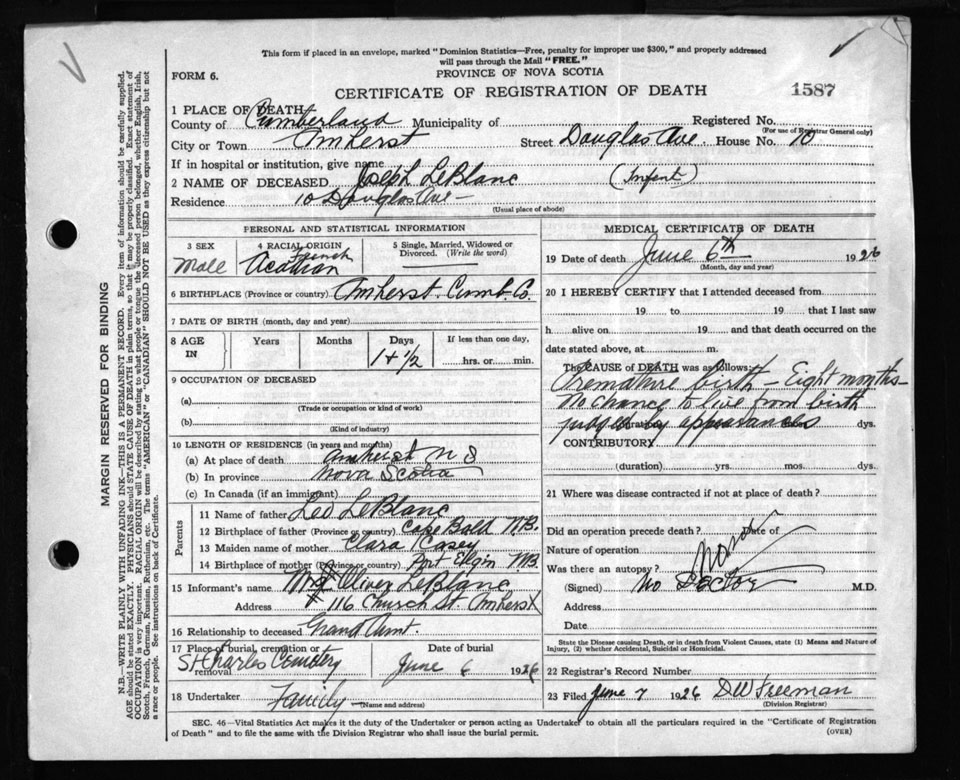 This form if placed in an envelope, marked "Dominion Statistics—Free, penalty for improper use $300," and properly addressed
will pass through the Mail "FREE."
FORM 6.
PROVINCE OF NOVA SCOTIA
CERTIFICATE OF REGISTRATION OF DEATH
1587
1 PLACE OF DEATH
County of Cumberland Municipality of Registered No.
(For use of Registrar General only)
City or Town Amherst Street Douglas Ave. House No. 10
If in hospital or institution, give name
2 NAME OF DECEASED Joseph LeBlanc (Infant)
Residence 10 Douglas Ave —
(Usual place of abode)
PERSONAL AND STATISTICAL INFORMATION
3 SEX
Male
4 RACIAL ORIGIN
French
Acadian
5 Single, Married, Widowed or
Divorced. (Write the word)
6 BIRTHPLACE (Province or country) Amherst. Cumb. Co.
7 DATE OF BIRTH (month, day and year)
8 AGE
IN
Years Months Days
1 + 1/2
If less than one day,
hrs. or min.
9 OCCUPATION OF DECEASED
(a)
(Trade or occupation or kind of work)
(b)
(Kind of industry)
10 LENGTH OF RESIDENCE (in years and months)
(a) At place of death Amherst N S
(b) In province Nova Scotia
(c) In Canada (if an immigrant)
Parents
11 Name of father Leo LeBlanc
12 Birthplace of father (Province or country) Cape Bald N.B.
13 Maiden name of mother Clara Casey
14 Birthplace of mother (Province or country) Port Elgin N.B.
15 Informant's name Mrs Oliver LeBlanc
Address 116 Church St. Amherst
16 Relationship to deceased Grand Aunt.
17 Place of burial, cremation or
removal
St Charles Cemetry
Date of burial
June 6 1926
18 Undertaker Family
(Name and address)
MEDICAL CERTIFICATE OF DEATH
19 Date of death June 6th 1926
(Month, day and year)
20 I HEREBY CERTIFY that I attended deceased from
19 to 19 that I last saw
h alive on 19 and that death occurred on the
date stated above, at m.
The CAUSE of DEATH was as follows:
Premature birth — Eight months —
No chance to live from birth
judged by appearances
(duration) dys.
CONTRIBUTORY
(duration) yrs. mos. dys.
21 Where was disease contracted if not at place of death?
Did an operation precede death? Date of
Nature of operation
Was there an autopsy?
(Signed) No Doctor M.D.
Address
Date
State the Disease causing Death, or in death from Violent Causes, state (1) Means and Nature of
Injury, (2) whether Accidental, Suicidal or Homicidal.
22 Registrar's Record Number
23 Filed June 7 1926 DW Freeman
(Division Registrar)
SEC. 46—Vital Statistics Act makes it the duty of the Undertaker or person acting as Undertaker to obtain all the particulars required in the "Certificate of Registration
of Death" and to file the same with the Division Registrar who shall issue the burial permit.
(OVER)
MARGIN RESERVED FOR BINDING
N.B.—WRITE PLAINLY WITH UNFADING INK—THIS IS A PERMANENT RECORD. Every item of information should be carefully supplied.
AGE should be stated EXACTLY. PHYSICIANS should STATE CAUSE OF DEATH in plain terms, so that it may be properly classified. Exact statement of
OCCUPATION is very important. RACIAL ORIGIN will be described by stating to what people or tongue the deceased person belonged, whether English, Irish,
Scotch, French, German, Russian, Ruthenian, etc. The terms "AMERICAN" or "CANADIAN" SHOULD NOT BE USED as they express citizenship but not
a race or people. See instructions on back of Certificate.